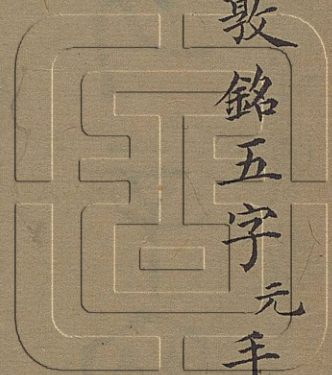 敦銘五字元手